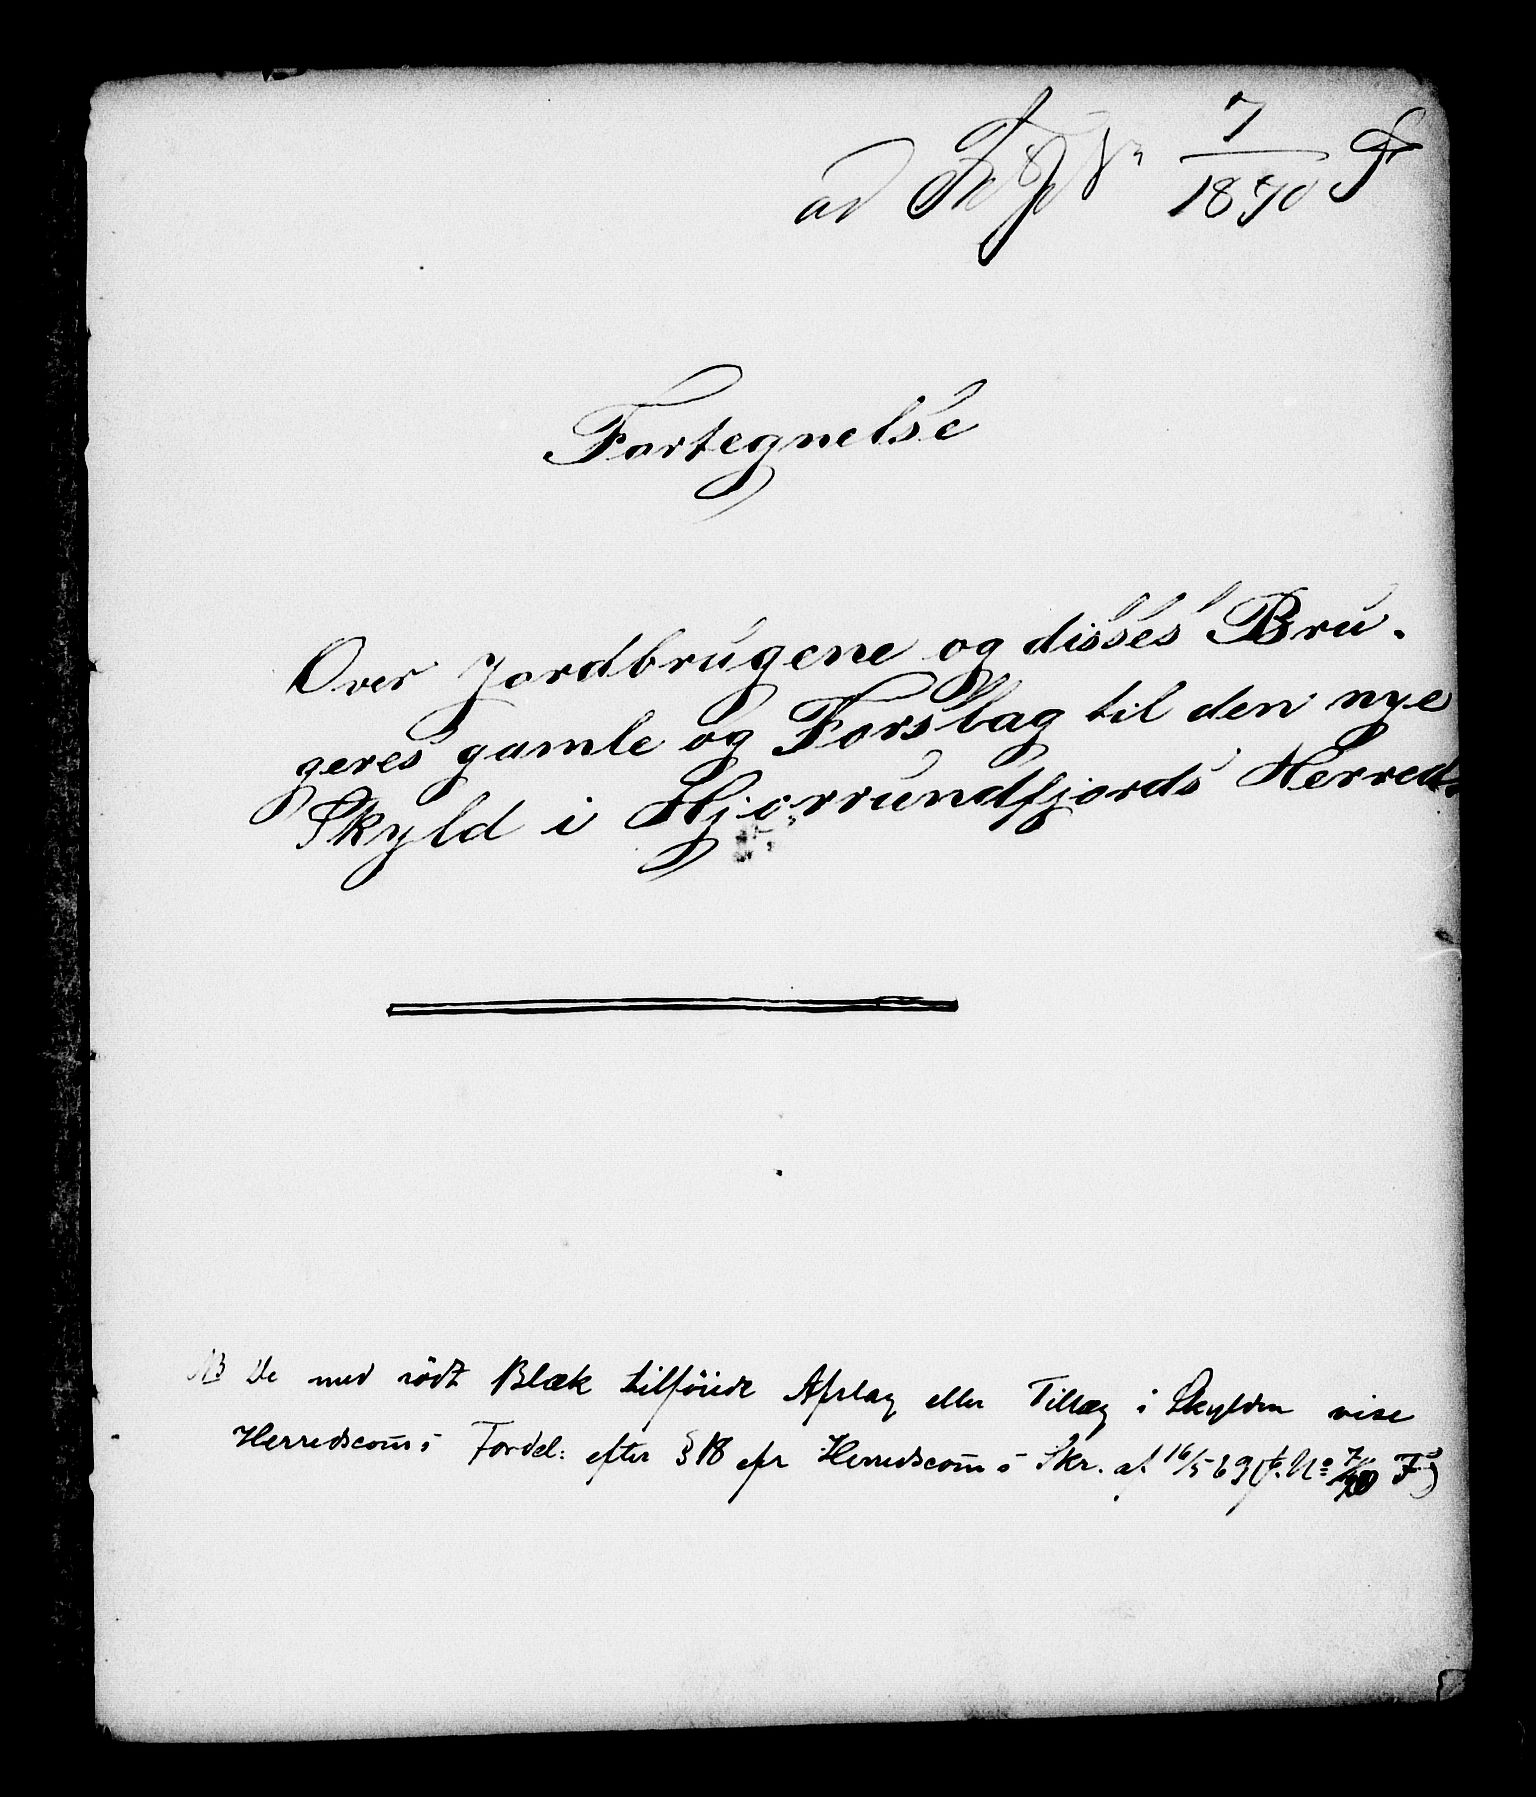 ad Nr 7/1870 F
Fortegnelse
Over Jordbrugene og disses Bru-
geres gamle og Forslag til den nye
Skyld i Hjørrundfjords Herred.
NB De med rödt Blæk tilföiede Afslag eller Tillæg i Skylden vise
Herredscom̅s Fordel: efter § 18 efr Herredscom̅s Skr. af 16/5 69 (J. No 7/70 F)